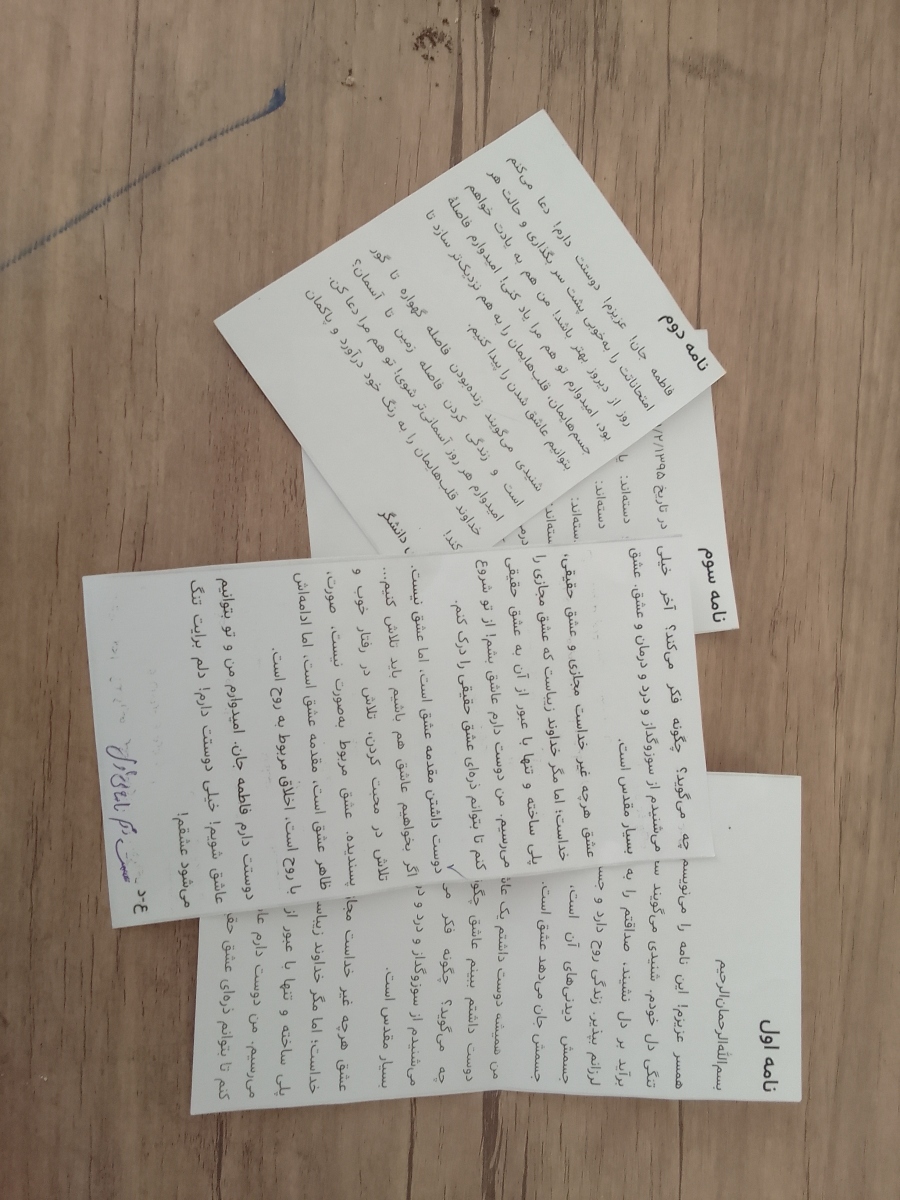 نامه اول
بسم‌الله‌الرحمان‌الرحیم
همسر عزیزم! این نامه را می‌نویسم
تنگی دل خودم. شنیدی می‌گویند
برآید بر دل نشیند، صداقتم را به
لرزانم بپذیر. زندگی روح دارد و
جسمش دیدنی‌های آن است،
جسمش جان می‌دهد عشق است.
من همیشه دوست داشتم یک
دوست داشتم ببینم عاشق
چه می‌گوید؟ چگونه فکر
می‌شنیدم از سوزوگداز و درد و
بسیار مقدس است.
عشق هرچه غیر خداست
خداست؛ اما مگر خداوند
پلی ساخته و تنها با عبور از
می‌رسیم. من دوست دارم
کنم تا بتوانم ذره‌ای عشق
چه می‌گوید؟ چگونه فکر می‌کند؟ آخر خیلی
می‌شنیدم از سوزوگداز و درد و درمان و عشق. عشق
بسیار مقدس است.
عشق هرچه غیر خداست مجازی و عشق حقیقی،
خداست؛ اما مگر خداوند زیباست که عشق مجازی را
پلی ساخته و تنها با عبور از آن به عشق حقیقی
می‌رسیم. من دوست دارم عاشق بشم! از تو شروع
کنم تا بتوانم ذره‌ای عشق حقیقی را درک کنم.
دوست داشتن مقدمه عشق است، اما عشق نیست.
اگر بخواهیم عاشق هم باشیم باید تلاش کنیم...
تلاش در محبت کردن، تلاش در رفتار خوب و
پسندیده. عشق مربوط به‌صورت نیست، صورت،
ظاهر عشق است، مقدمه عشق است، اما ادامه‌اش
با روح است، اخلاق مربوط به روح است.
دوستت دارم فاطمه جان، امیدوارم من و تو بتوانیم
عاشق شویم! خیلی دوستت دارم! دلم برایت تنگ
می‌شود عشقم!
ع-د
نامه دوم
فاطمه جان! عزیزم! دوستت دارم! دعا می‌کنم
امتحاناتت را به‌خوبی پشت سر بگذاری و حالت هر
روز از دیروز بهتر باشد! من هم به یادت خواهم
بود، امیدوارم تو هم مرا یاد کنی! امیدوارم فاصلهٔ
جسم‌هایمان، قلب‌هایمان را به هم نزدیک‌تر سازد تا
بتوانیم عاشق شدن را پیدا کنیم.
شنیدی می‌گویند زنده‌بودن فاصله گهواره تا گور
است و زندگی کردن فاصله زمین تا آسمان؟
امیدوارم هر روز آسمانی‌تر شوی! تو هم مرا دعا کن.
خداوند قلب‌هایمان را به رنگ خود درآورد و پاکمان
کند!
نامه سوم
در تاریخ ۷/۲/۱۳۹۵
دسته‌اند:
دسته‌اند:
دانشگر